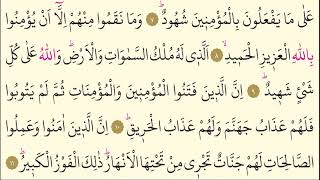 عَلٰى مَا يَفْعَلُونَ بِالْمُؤْمِنِينَ شُهُودٌ ﴿٧﴾ وَمَا نَقَمُوا مِنْهُمْ اِلَّٓا اَنْ يُؤْمِنُوا
بِاللّٰهِ الْعَزِيزِ الْحَمِيدِ ﴿٨﴾ اَلَّذ۪ي لَهُ مُلْكُ السَّمٰوَاتِ وَالْاَرْضِ وَاللّٰهُ عَلٰى كُلِّ
شَيْءٍ شَهِيدٌ ﴿٩﴾ اِنَّ الَّذِينَ فَتَنُوا الْمُؤْمِنِينَ وَالْمُؤْمِنَاتِ ثُمَّ لَمْ يَتُوبُوا
فَلَهُمْ عَذَابُ جَهَنَّمَ وَلَهُمْ عَذَابُ الْحَرِيقِ ﴿١٠﴾ اِنَّ الَّذِينَ اٰمَنُوا وَعَمِلُوا
الصَّالِحَاتِ لَهُمْ جَنَّاتٌ تَجْرِي مِنْ تَحْتِهَا الْاَنْهَارُ ذٰلِكَ الْفَوْزُ الْكَبِيرُ ﴿١١﴾